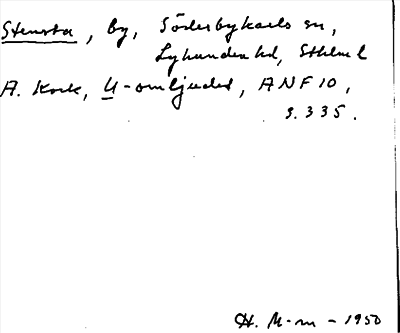 Stensta, by, Söderbykarls sn,
Lyhundra hd, Sthlms l
A. Kock, U-omljudet, ANF 10,
s. 335.
H. M-m - 1950